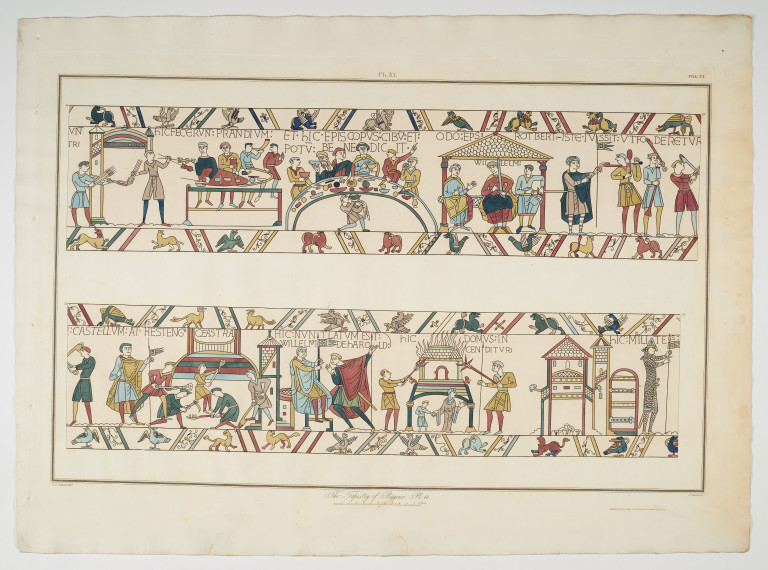 PL. XI.
VN
TRI
hIC FECERVN: PRANDIVM:
ET·hIC·EPISCOPVS:CIBV:ET:
POTV: BENEDICIT·
ODO:EPS:
WILLELM:
ROTBERT:
ISTE:IVSSIT:VT FODERETVR
:CASTELLVM·AT·HESTENG
CEASTRA
HIC:NVNTIATVM EST:
WILLELM
DE hAROLD:
hIC DOMVS:IN
CENDITVR:
hIC:MILITE
The Tapestry of Bayeux. Pl. 11